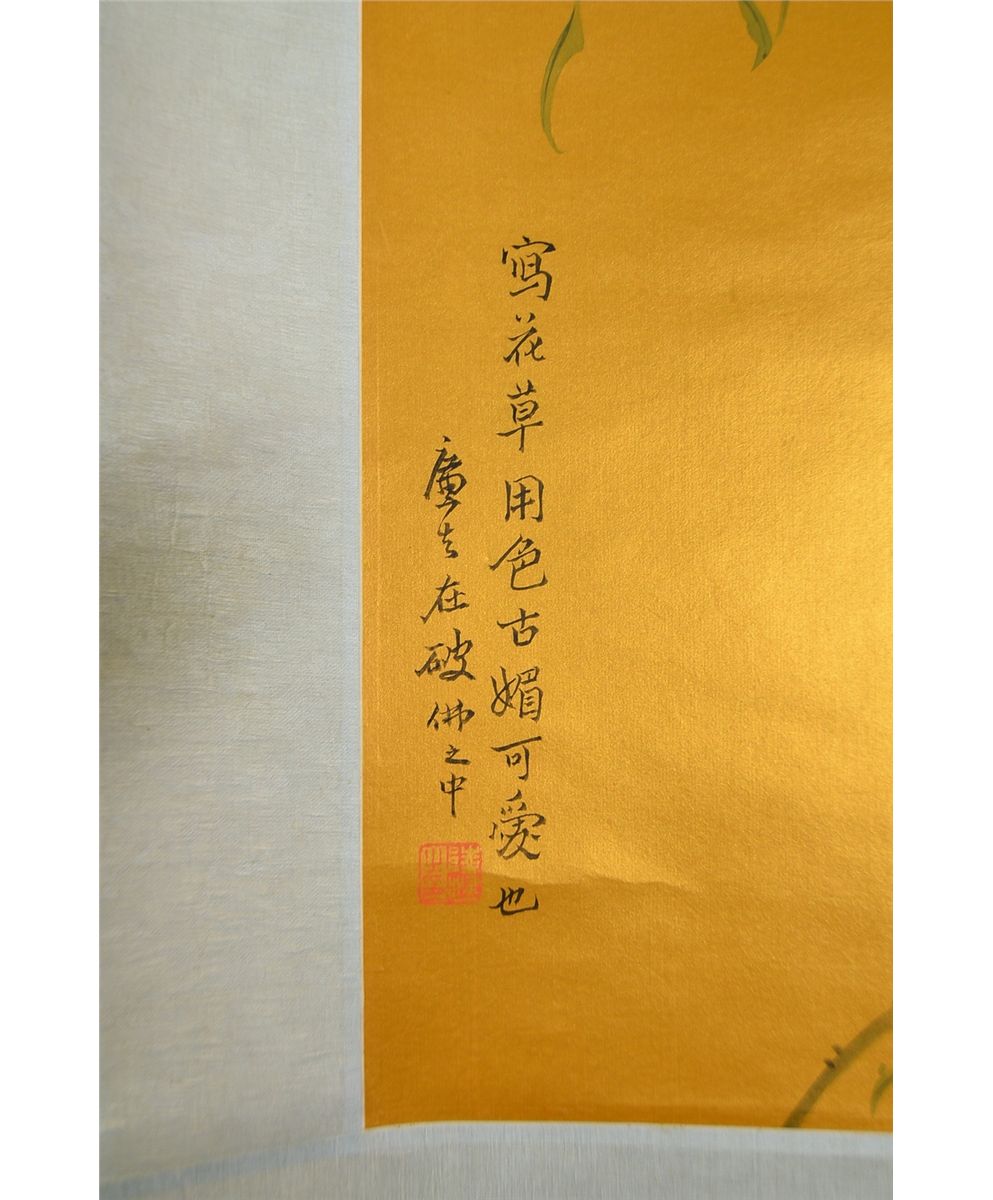 寫花草用色古媚可愛也
在破佛之中